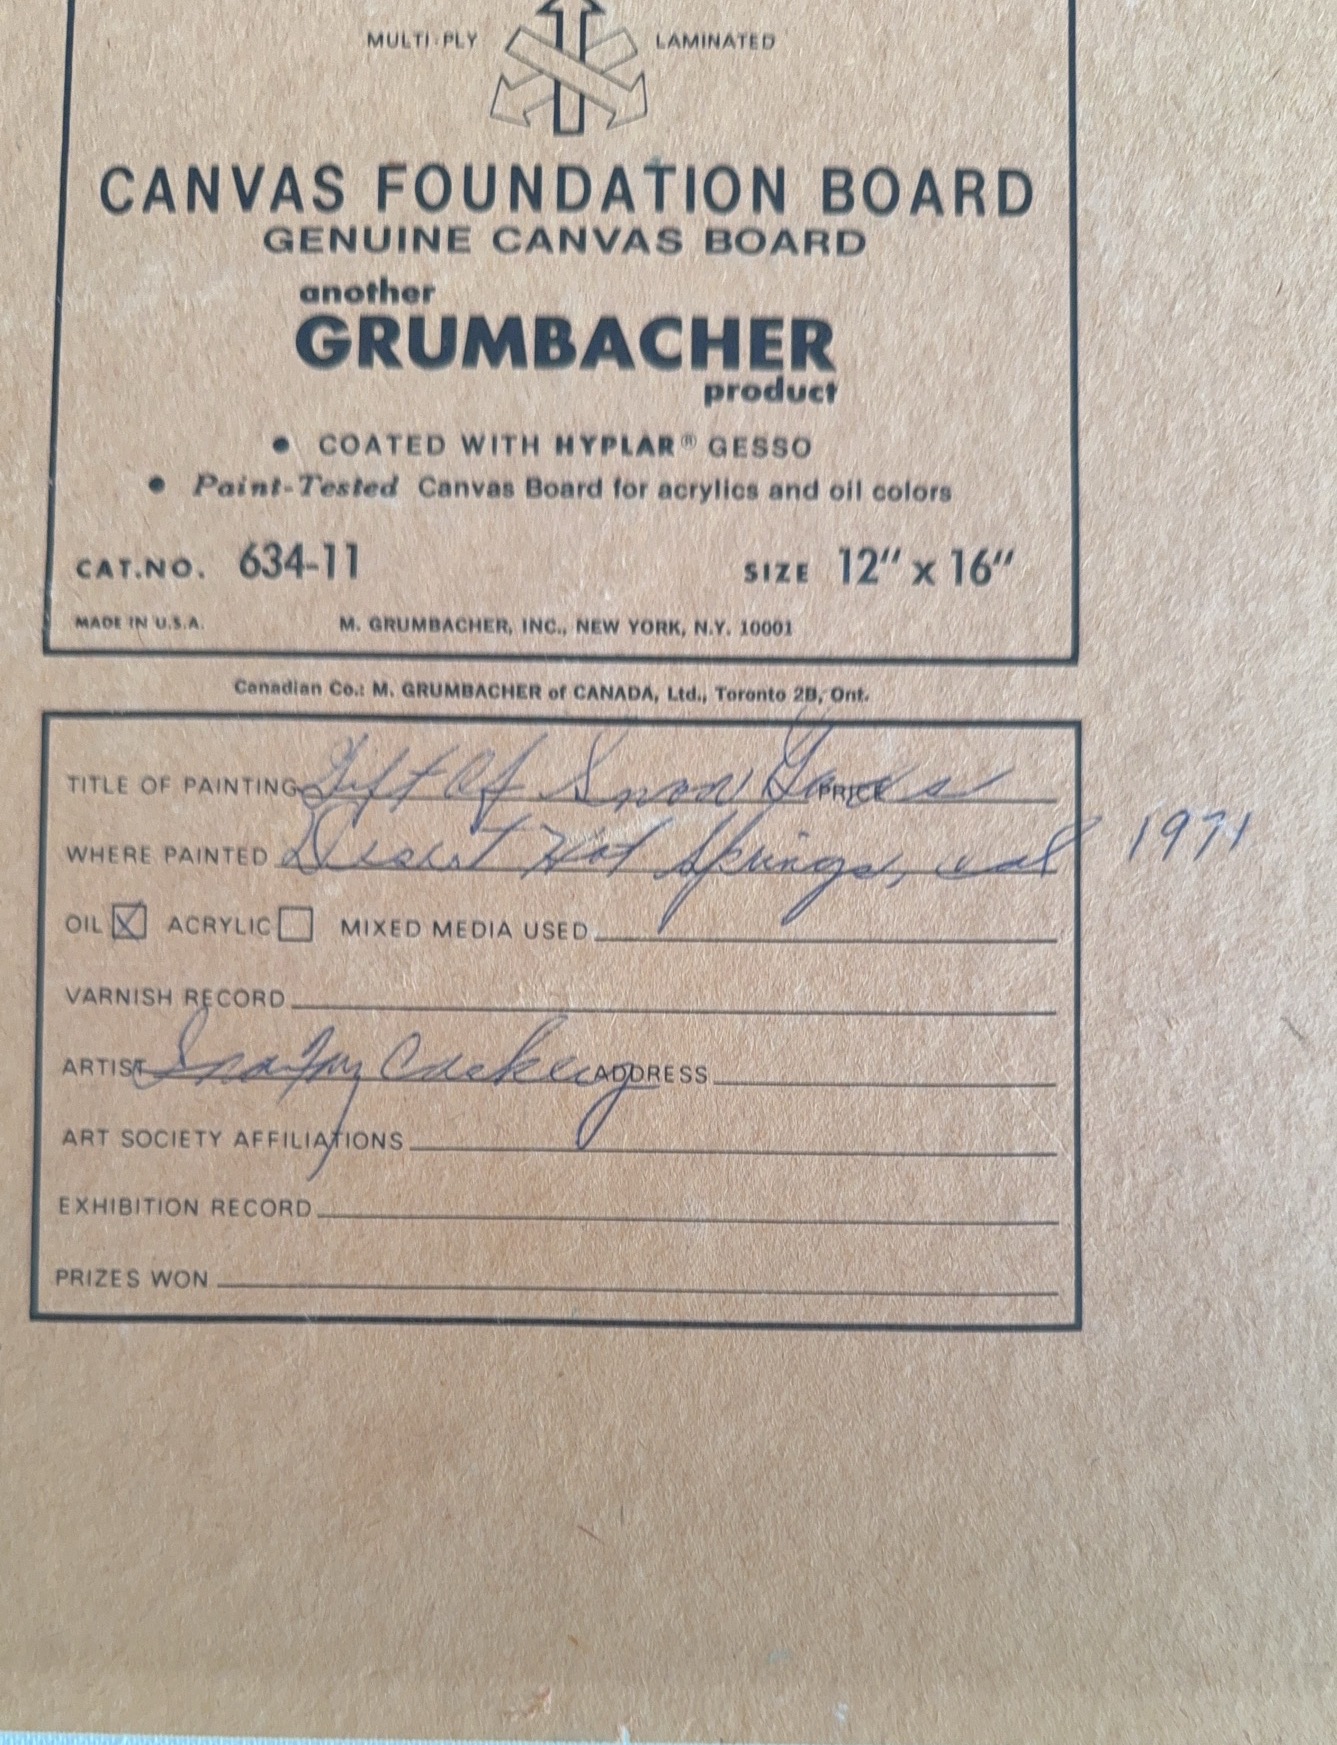 MULTI-PLY LAMINATED
CANVAS FOUNDATION BOARD
GENUINE CANVAS BOARD
another
GRUMBACHER
product
• COATED WITH HYPLAR® GESSO
• Paint-Tested Canvas Board for acrylics and oil colors
CAT.NO. 634-11 SIZE 12" x 16"
MADE IN U.S.A. M. GRUMBACHER, INC., NEW YORK, N.Y. 10001
Canadian Co.: M. GRUMBACHER of CANADA, Ltd., Toronto 2B, Ont.
TITLE OF PAINTING Gift Of Snow PRICE
WHERE PAINTED Desert Hot Springs, Cal 1971
OIL X ACRYLIC MIXED MEDIA USED
VARNISH RECORD
ARTIST ADDRESS
ART SOCIETY AFFILIATIONS
EXHIBITION RECORD
PRIZES WON